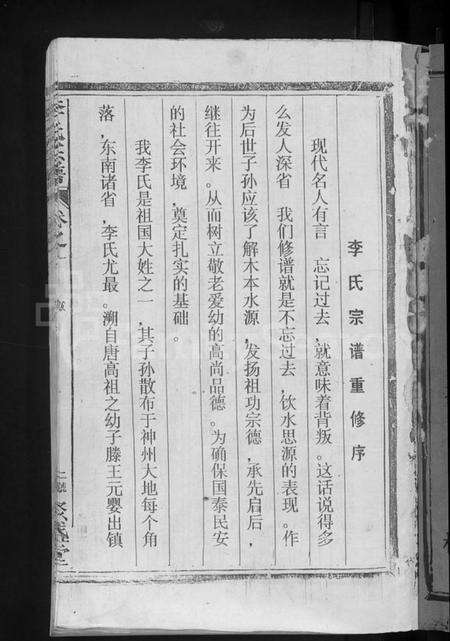 李氏宗谱重修序
现代名人有言　忘记过去，就意味着背叛。这话说得多
么发人深省　我们修谱就是不忘过去，饮水思源的表现。作
为后世子孙应该了解木本水源，发扬祖功宗德，承先启后，
继往开来。从而树立敬老爱幼的高尚品德。为确保国泰民安
的社会环境，奠定扎实的基础。
我李氏是祖国大姓之一，其子孙散布于神州大地每个角
落，东南诸省，李氏尤最。溯自唐高祖之幼子滕王元婴出镇
李氏宗谱
卷之